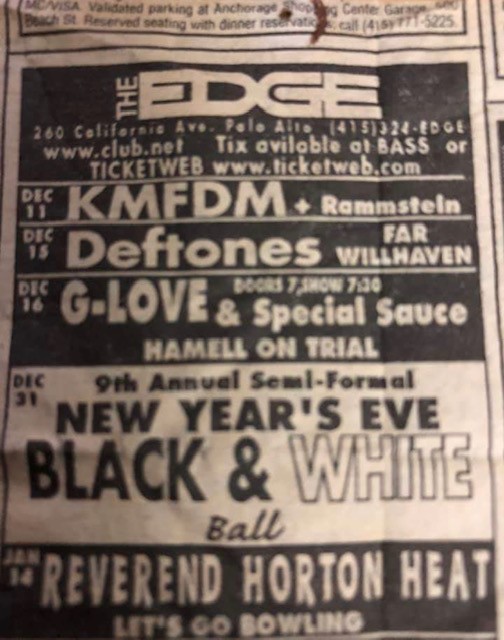 MC/VISA. Validated parking at Anchorage Shopping Center Garage, 500
Beach St. Reserved seating with dinner reservations. call (415) 771-5225.
THE EDGE
260 California Ave. Palo Alto (415)324-EDGE
www.club.net Tix avilable at BASS or
TICKETWEB www.ticketweb.com
DEC 11 KMFDM + Rammstein
DEC 15 Deftones FAR WILLHAVEN
DEC 16 G-LOVE & Special Sauce
DOORS 7, SHOW 7:30
HAMELL ON TRIAL
DEC 31 9th Annual Semi-Formal
NEW YEAR'S EVE
BLACK & WHITE
Ball
JAN 14 REVEREND HORTON HEAT
LET'S GO BOWLING